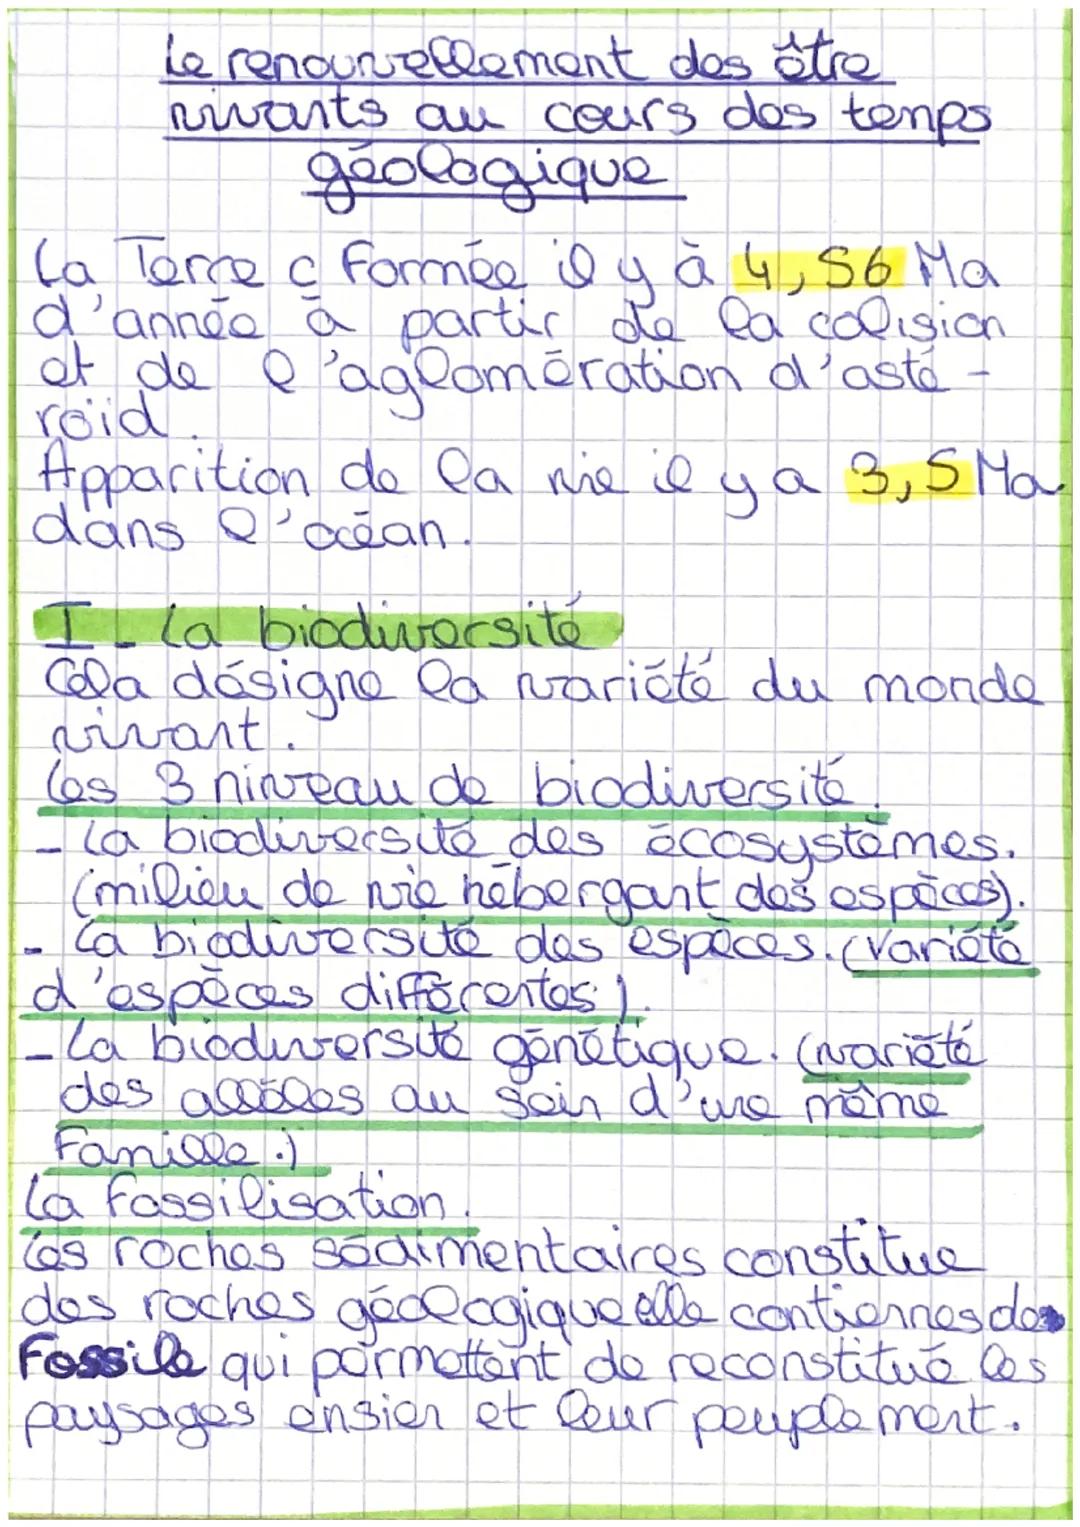 Le renouvellement des être
vivants au cours des temps
géologique
La Terre c formée il y à 4,56 Ma
d'année à partir de la colision
et de l'aglomération d'asté-
roïd.
Apparition de la vie il y a 3,5 Ma
dans l'océan.
I - La biodiversité
Cela désigne la variété du monde
vivant.
Les 3 niveau de biodiversité.
- La biodiversité des écosystèmes.
(milieu de vie hébergant des espèces).
- La biodiversité des espèces. (variété
d'espèces différentes).
- La biodiversité génétique. (variété
des allèles au sein d'une même
famille.)
La fossilisation.
Les roches sédimentaires constitue
des roches géologique elle contiennes des
Fossile qui permettent de reconstitué les
paysages ensien et leur peuplement.